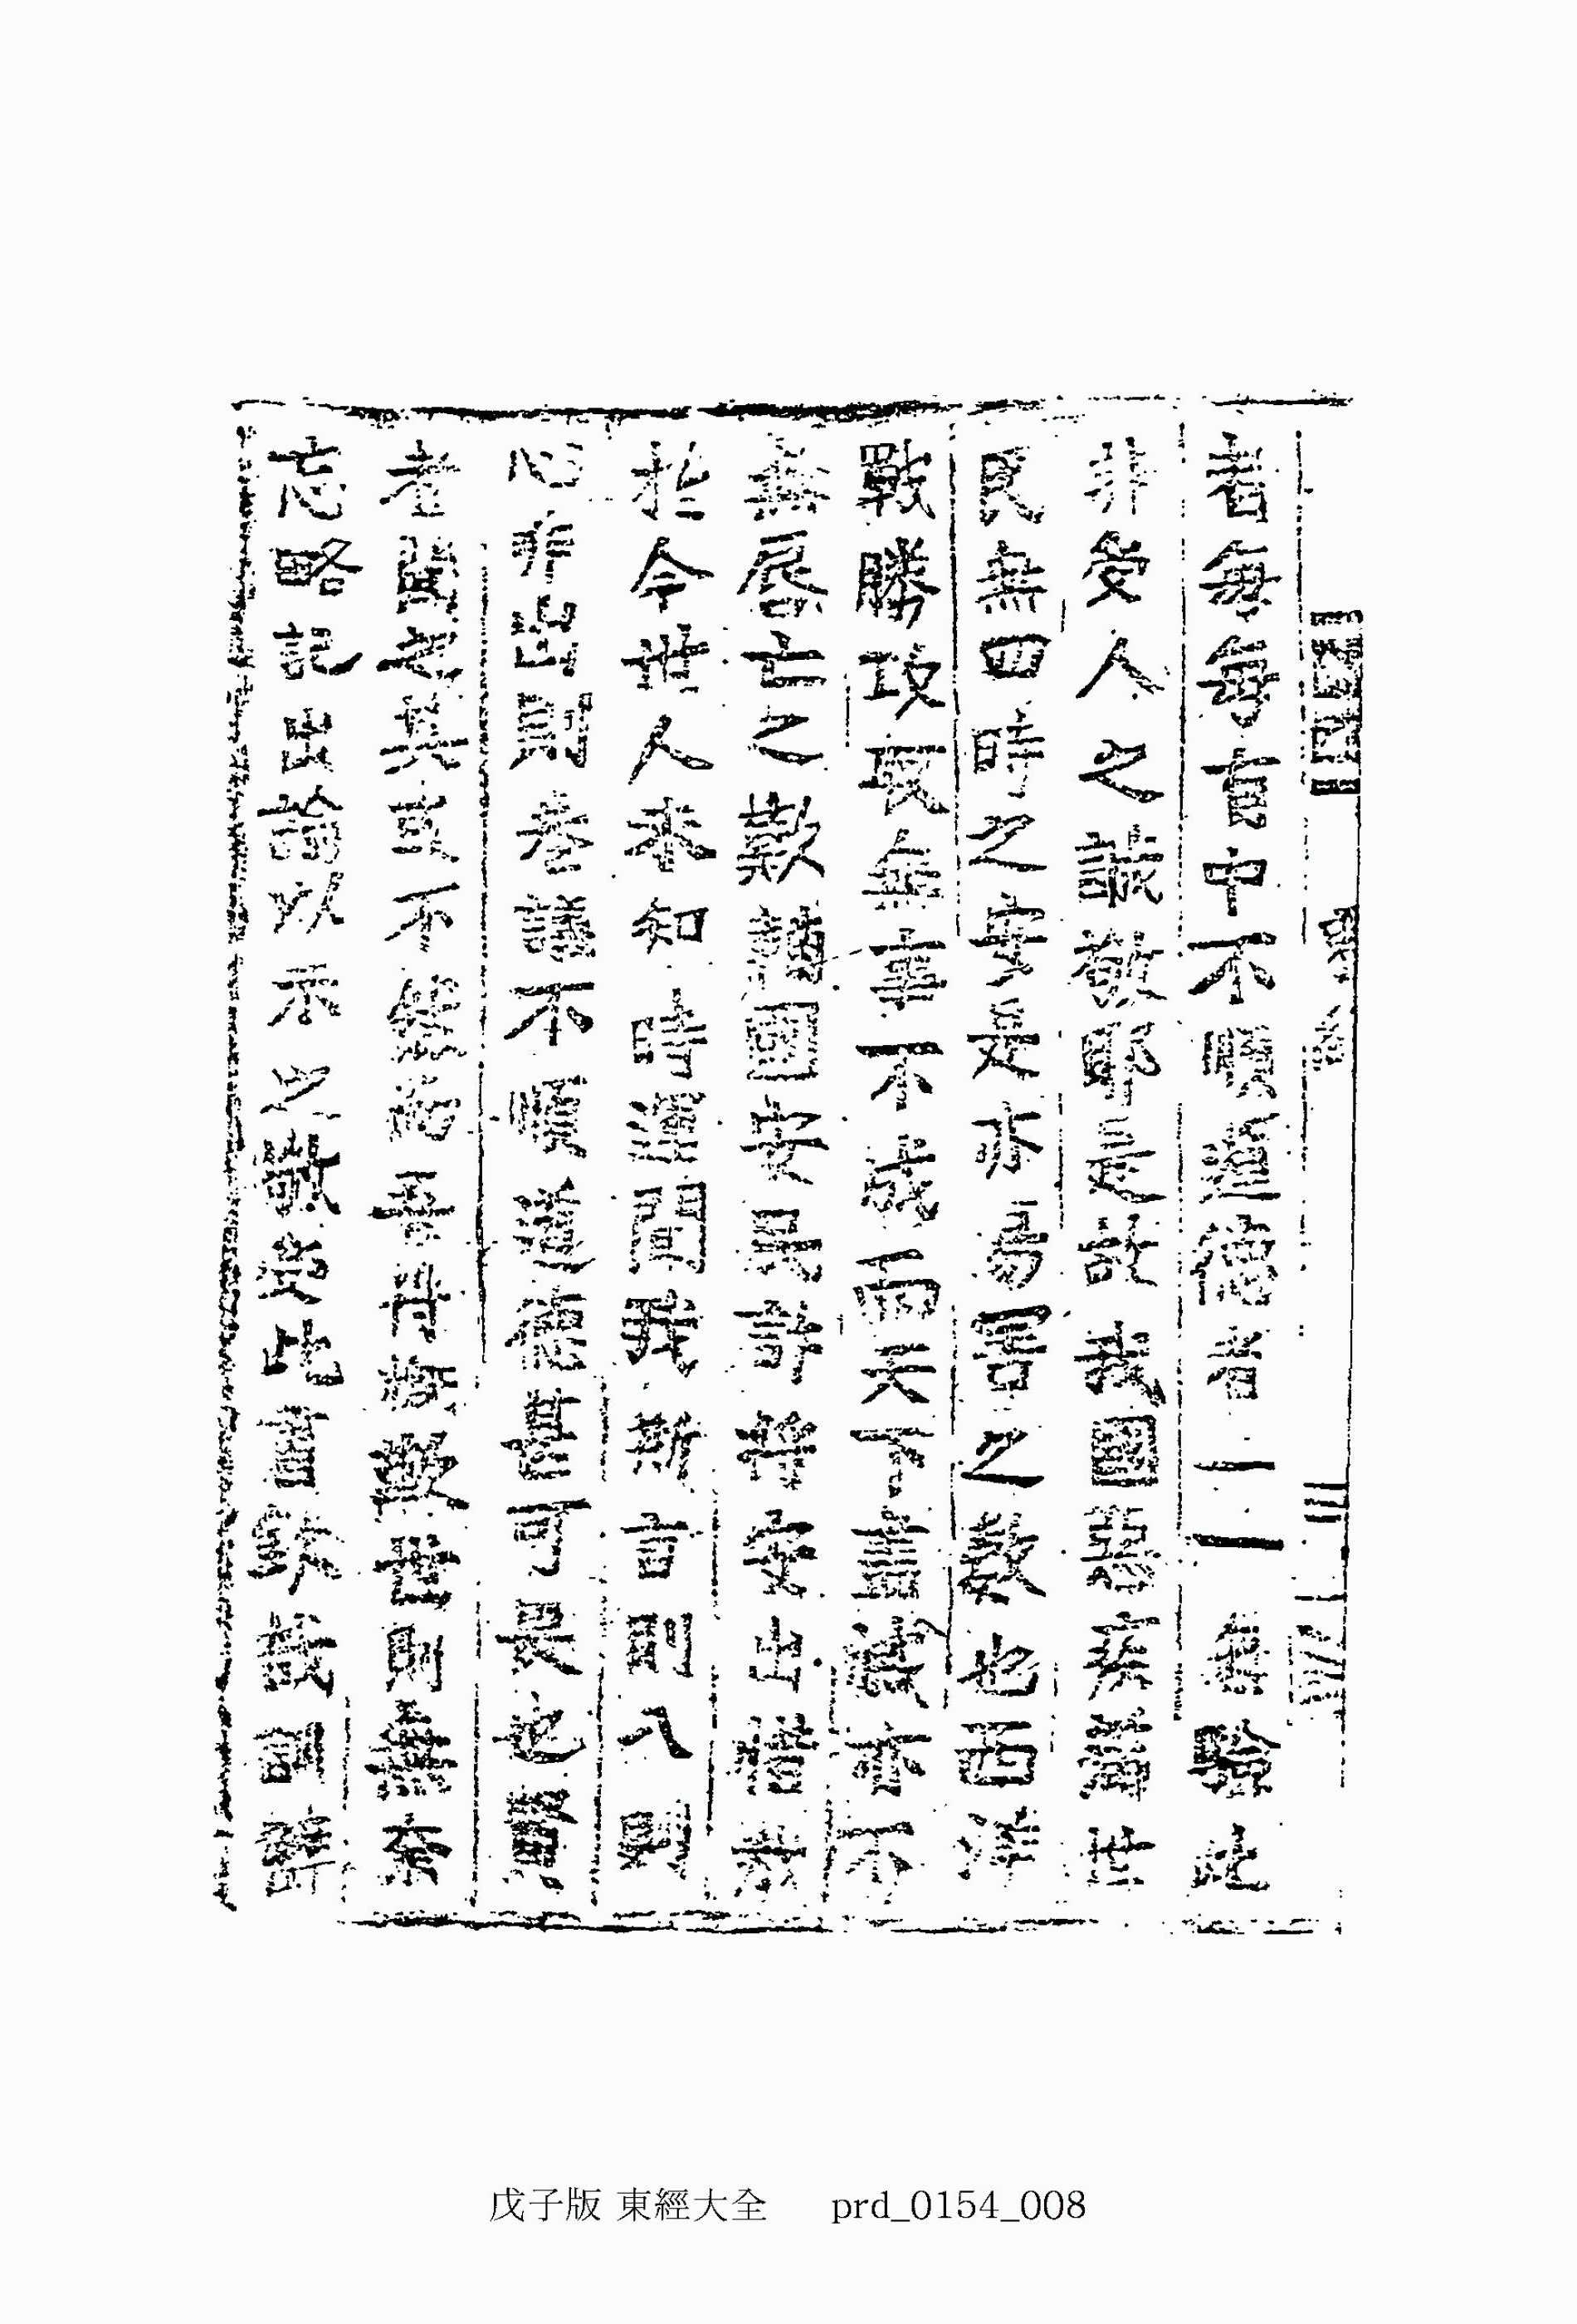 者每每有中不順道德者一一無驗此
非受人之誠敬耶是故我國惡疾滿世
民無四時之安是亦傷害之數也西洋
戰勝攻取無事不成而天下盡滅亦不
無脣亡之歎輔國安民計將安出惜哉
於今世人未知時運聞我斯言則入則
心非出則巷議不順道德甚可畏也賢
者聞之其或不然而吾將慨歎世則無奈
忘略記出諭以示之敬受此書欽哉訓辭
戊子版 東經大全 prd_0154_008